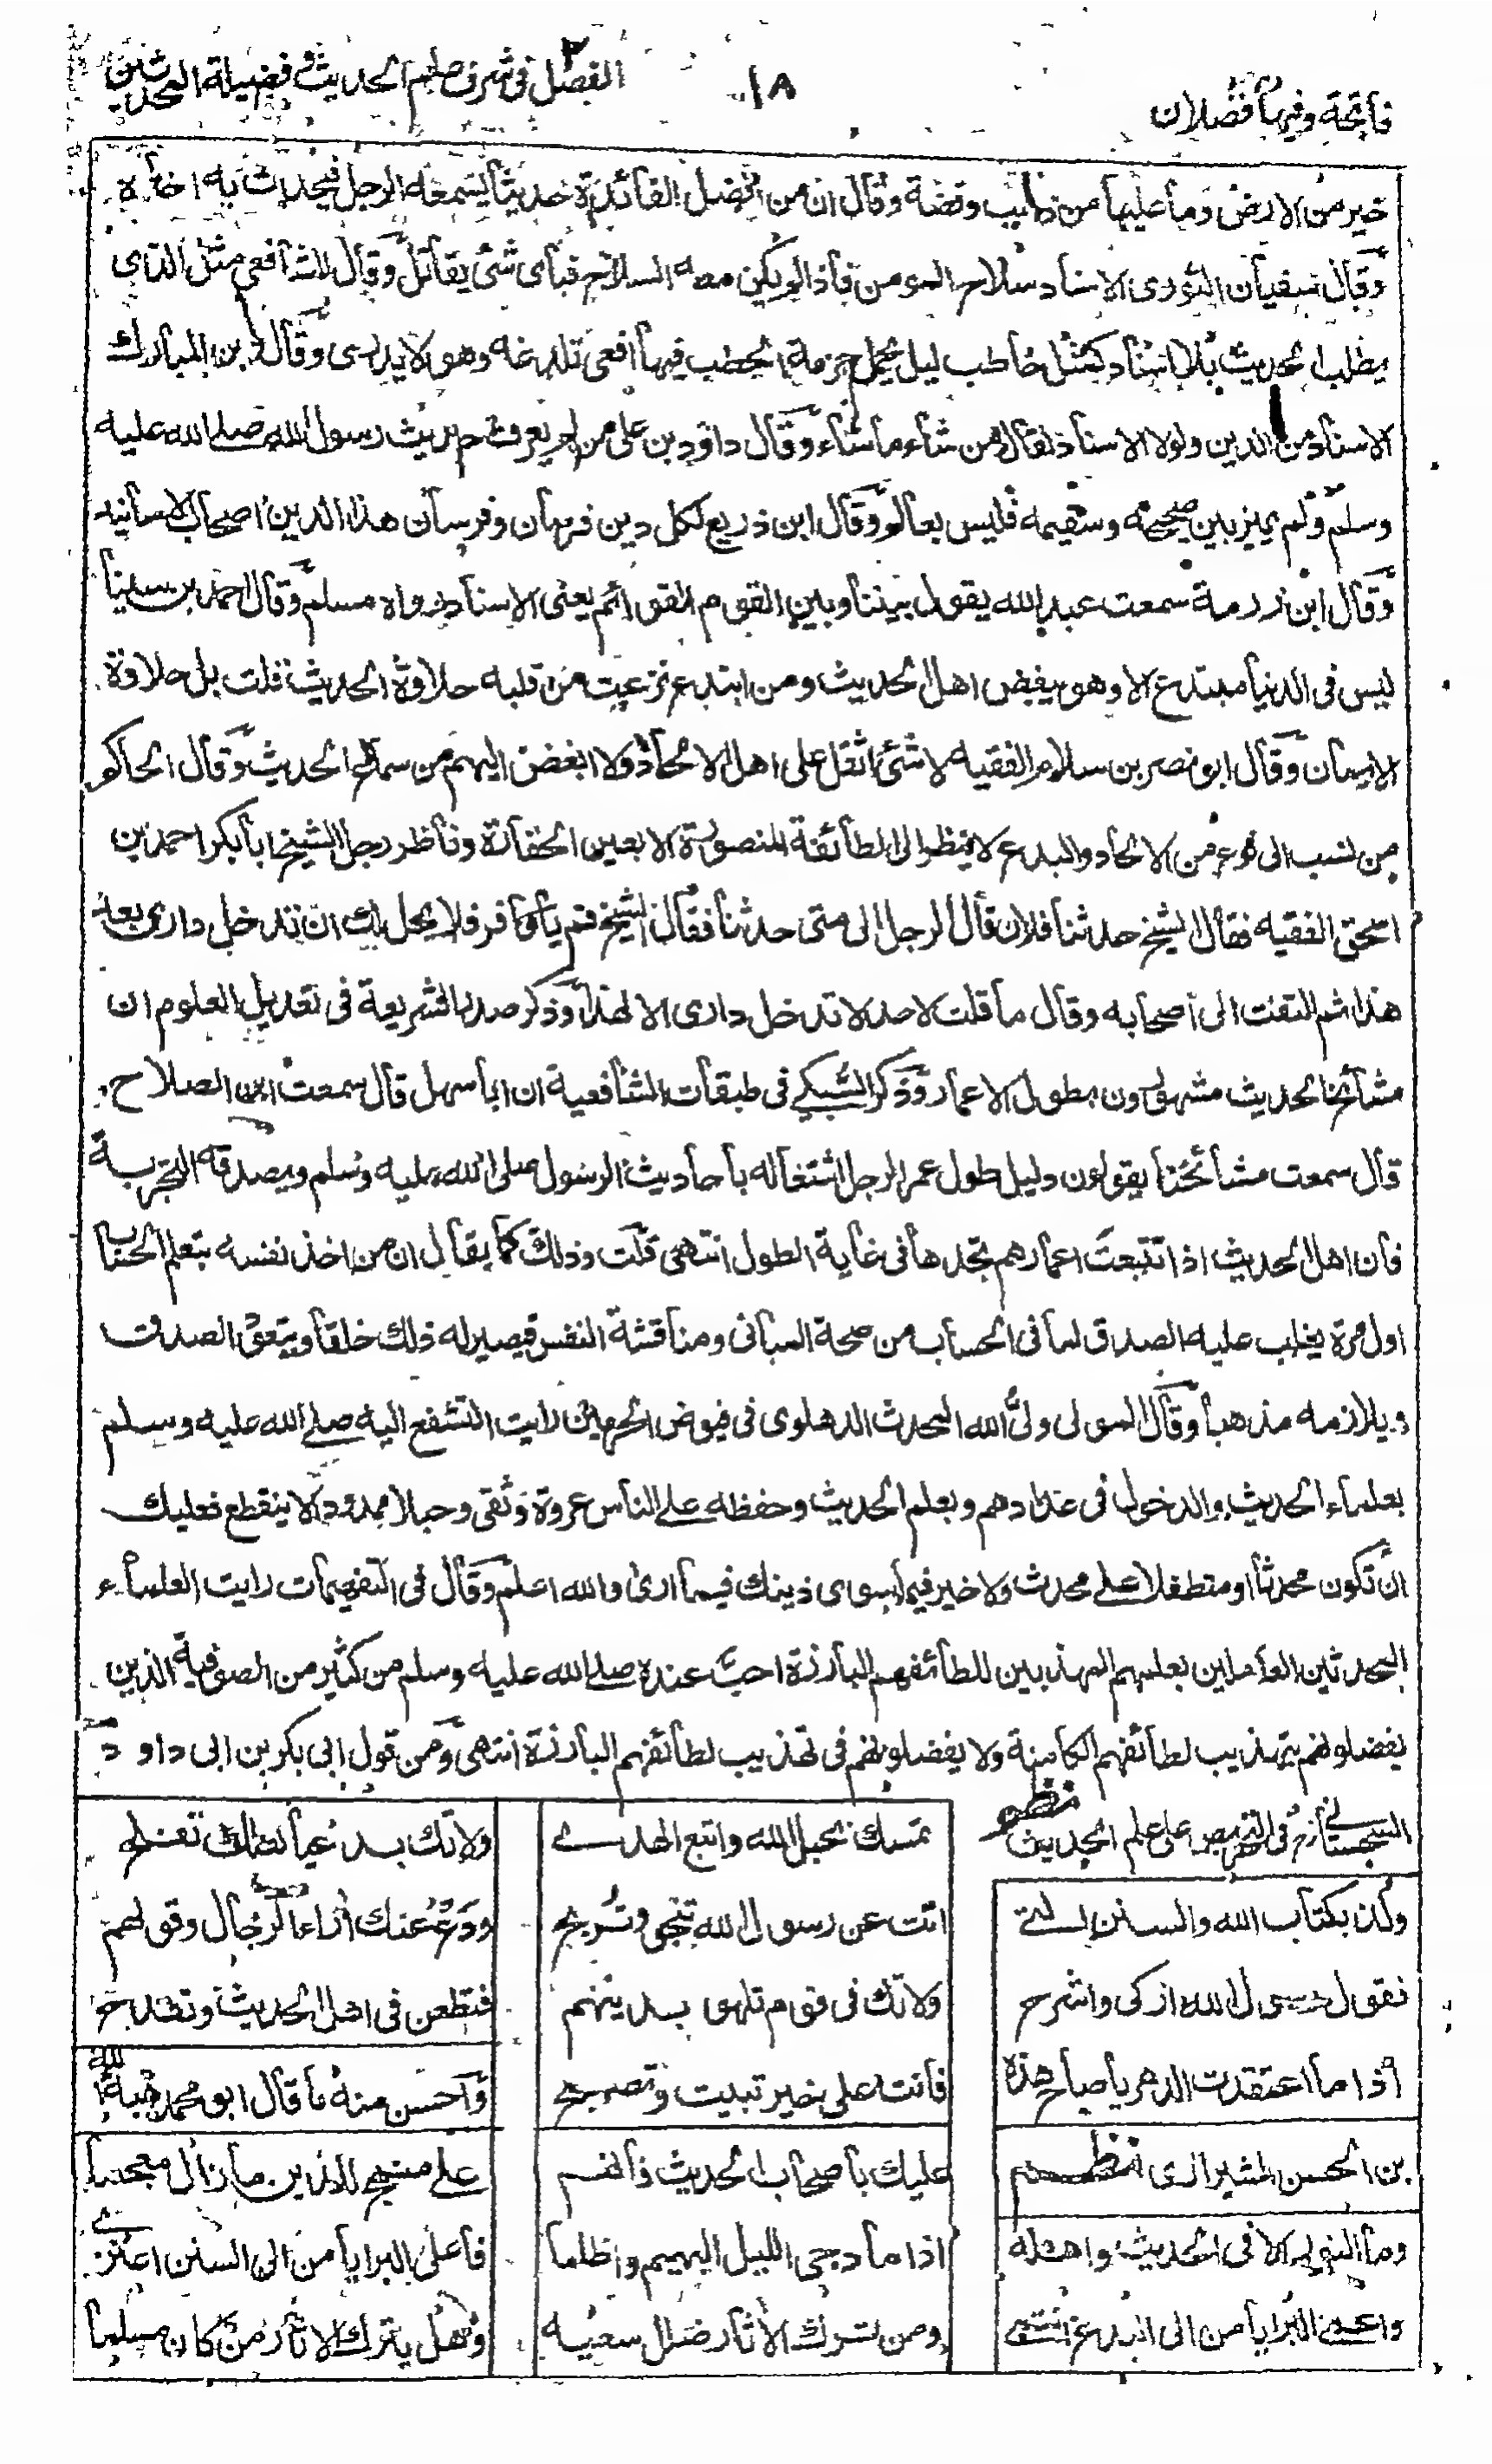 فاتحة وفيها فصلان
١٨
الفصل ٢ فى شرف علم الحديث وفضيلة المحدثين
خير من الارض وما عليها من ذهب وفضة وقال ان من افضل الفائدة حديثا يسمعه الرجل فيحدث به اخاه
وقال سفيان الثورى الاسناد سلاح المومن فاذا لم يكن معه السلاح فباى شئ يقاتل وقال الشافعى مثل الذى
يطلب الحديث بلا اسناد كمثل حاطب ليل يحمل حزمة الحطب فيها افعى تلدغه وهو لا يدرى وقال ابن المبارك
الاسناد من الدين ولولا الاسناد لقال من شاء ما شاء وقال داؤد بن على من لم يعرف حديث رسول الله صلے الله عليه
وسلم ولم يميز بين صحيحه وسقيمه فليس بعالم وقال ابن ذريع لكل دين فرسان وفرسان هذا الدين اصحاب الاسانيد
وقال ابن زرمة سمعت عبد الله يقول بيننا وبين القوم القوائم يعنى الاسناد رواه مسلم وقال احمد بن سنان
ليس فى الدنيا مبتدع الا وهو يبغض اهل الحديث ومن ابتدع نزعت من قلبه حلاوة الحديث قلت بل حلاوة
الايمان وقال ابو نصر بن سلام الفقيه لا شئ اثقل على اهل الالحاد ولا ابغض اليهم من سماع الحديث وقال الحاكم
من نسب الى نوع من الالحاد والبدع لا ينظر الى الطائفة المنصورة الا بعين الحقارة وناظر رجل الشيخ ابا بكر احمد بن
اسحق الفقيه فقال الشيخ حدثنا فلان قال الرجل الى متى حدثنا فقال الشيخ قم يا كافر فلا يحل لك ان تدخل دارى بعد
هذا ثم التفت الى اصحابه وقال ما قلت لاحد لا تدخل دارى الا لهذا وذكر صدر الشريعة فى تعديل العلوم ان
مشائخ الحديث مشهورون بطول الاعمار وذكر السبكے فى طبقات الشافعية ان ابا سهل قال سمعت ابن الصلاح
قال سمعت مشائخنا يقولون دليل طول عمر الرجل اشتغاله باحاديث الرسول صلى الله عليه وسلم ويصدقه التجربة
فان اهل الحديث اذا تتبعت اعمارهم تجدها فى غاية الطول انتهى قلت وذلك كما يقال ان من اخذ نفسه بتعلم الحساب
اول مرة يغلب عليه الصدق لما فى الحساب من صحة المبانى ومناقشة النفس فيصير له ذلك خلقا ويتعود الصدق
ويلازمه مذهبا وقال المولى ولى الله المحدث الدهلوى فى فيوض الحرمين رايت التشفع اليه صلے الله عليه وسلم
بعلماء الحديث والدخول فى عدادهم وبعلم الحديث وحفظه على الناس عروة وثقى وحبلا ممدودا لا ينقطع فعليك
ان تكون محدثا او متطفلا على محدث ولا خير فيما سوى ذينك فيما ارى والله اعلم وقال فى التفهيمات رايت العلماء
المحدثين العاملين بعلمهم المهذبين للطائفهم البارزة احب عنده صلے الله عليه وسلم من كثير من الصوفية الذين
يفضلونهم بتهذيب لطائفهم الكامنة ولا يفضلونهم فى تهذيب لطائفهم البارزة انتهى ومن قول ابى بكر بن ابى داود
السجستانے فى التحريص على علم الحديث نظم
تمسك بحبل الله واتبع الهدے
ولا تك بدعيا لعلك تفلح
ولذ بكتاب الله والسنن التے
اتت عن رسول الله تنجى وتربح
ودع عنك اراء الرجال وقولهم
فقول رسول الله ازكى واشرح
ولا تك فى قوم تلهو بدينهم
فتطعن فى اهل الحديث وتقدح
اذا ما اعتقدت الدهر يا صاح هذه
فانت على خير تبيت وتصبح
واحسن منه ما قال ابو محمد هبة الله
بن الحسن الشيرازى نظم
عليك باصحاب الحديث فانهم
على منهج للدين ما زال معجما
وما النور الا فى الحديث واهله
اذا ما دجى الليل البهيم واظلما
فاعلى البرايا من الى السنن اعتزے
واعمى البرايا من الى البدع انتمى
ومن ترك الاثار ضلل سعيه
وهل يترك الاثار من كان مسلما